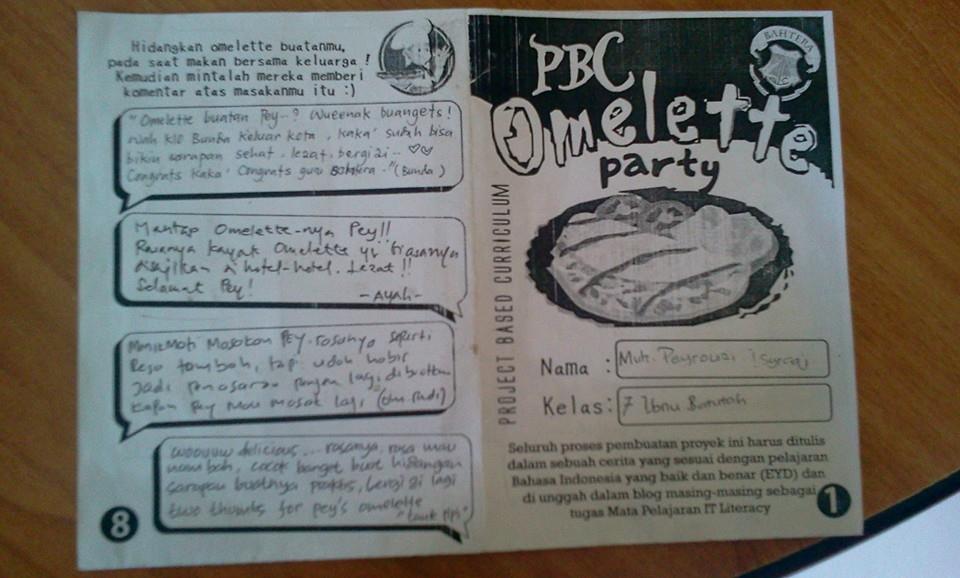 Hidangkan omelette buatanmu,
pada saat makan bersama keluarga !
Kemudian mintalah mereka memberi
komentar atas masakanmu itu :)
"Omelette buatan Pey..? Wueenak buangets!
klo Bunda keluar kota, kaka' sudah bisa
bikin sarapan sehat, lezat, bergizi...
Congrats kaka' Congrats guru Bahtera.." (Bunda)
Mantap Omelette-nya Pey!!
Rasanya kayak Omelette yg biasanya
disajikan di hotel-hotel. Lezat!!
Selamat Pey!
-Ayah-
Menikmati Masakan Pey. rasanya seperti
tambah, tapi udah habis
Jadi penasaran pengen lagi
kapan Pey Mau masak lagi
woouuw delicious... rasanya, rasa mau
nambah, cocok banget buat hidangan
sarapan buatnya praktis, bergizi lagi
two thumbs for pey's omelette
8
PBC
Omelette
party
BAHTERA
PROJECT BASED CURRICULUM
Nama : Muh. Peyrouzi
Kelas: 7 Ibnu Batutah
Seluruh proses pembuatan proyek ini harus ditulis
dalam sebuah cerita yang sesuai dengan pelajaran
Bahasa Indonesia yang baik dan benar (EYD) dan
di unggah dalam blog masing-masing sebagai
tugas Mata Pelajaran IT Literacy
1